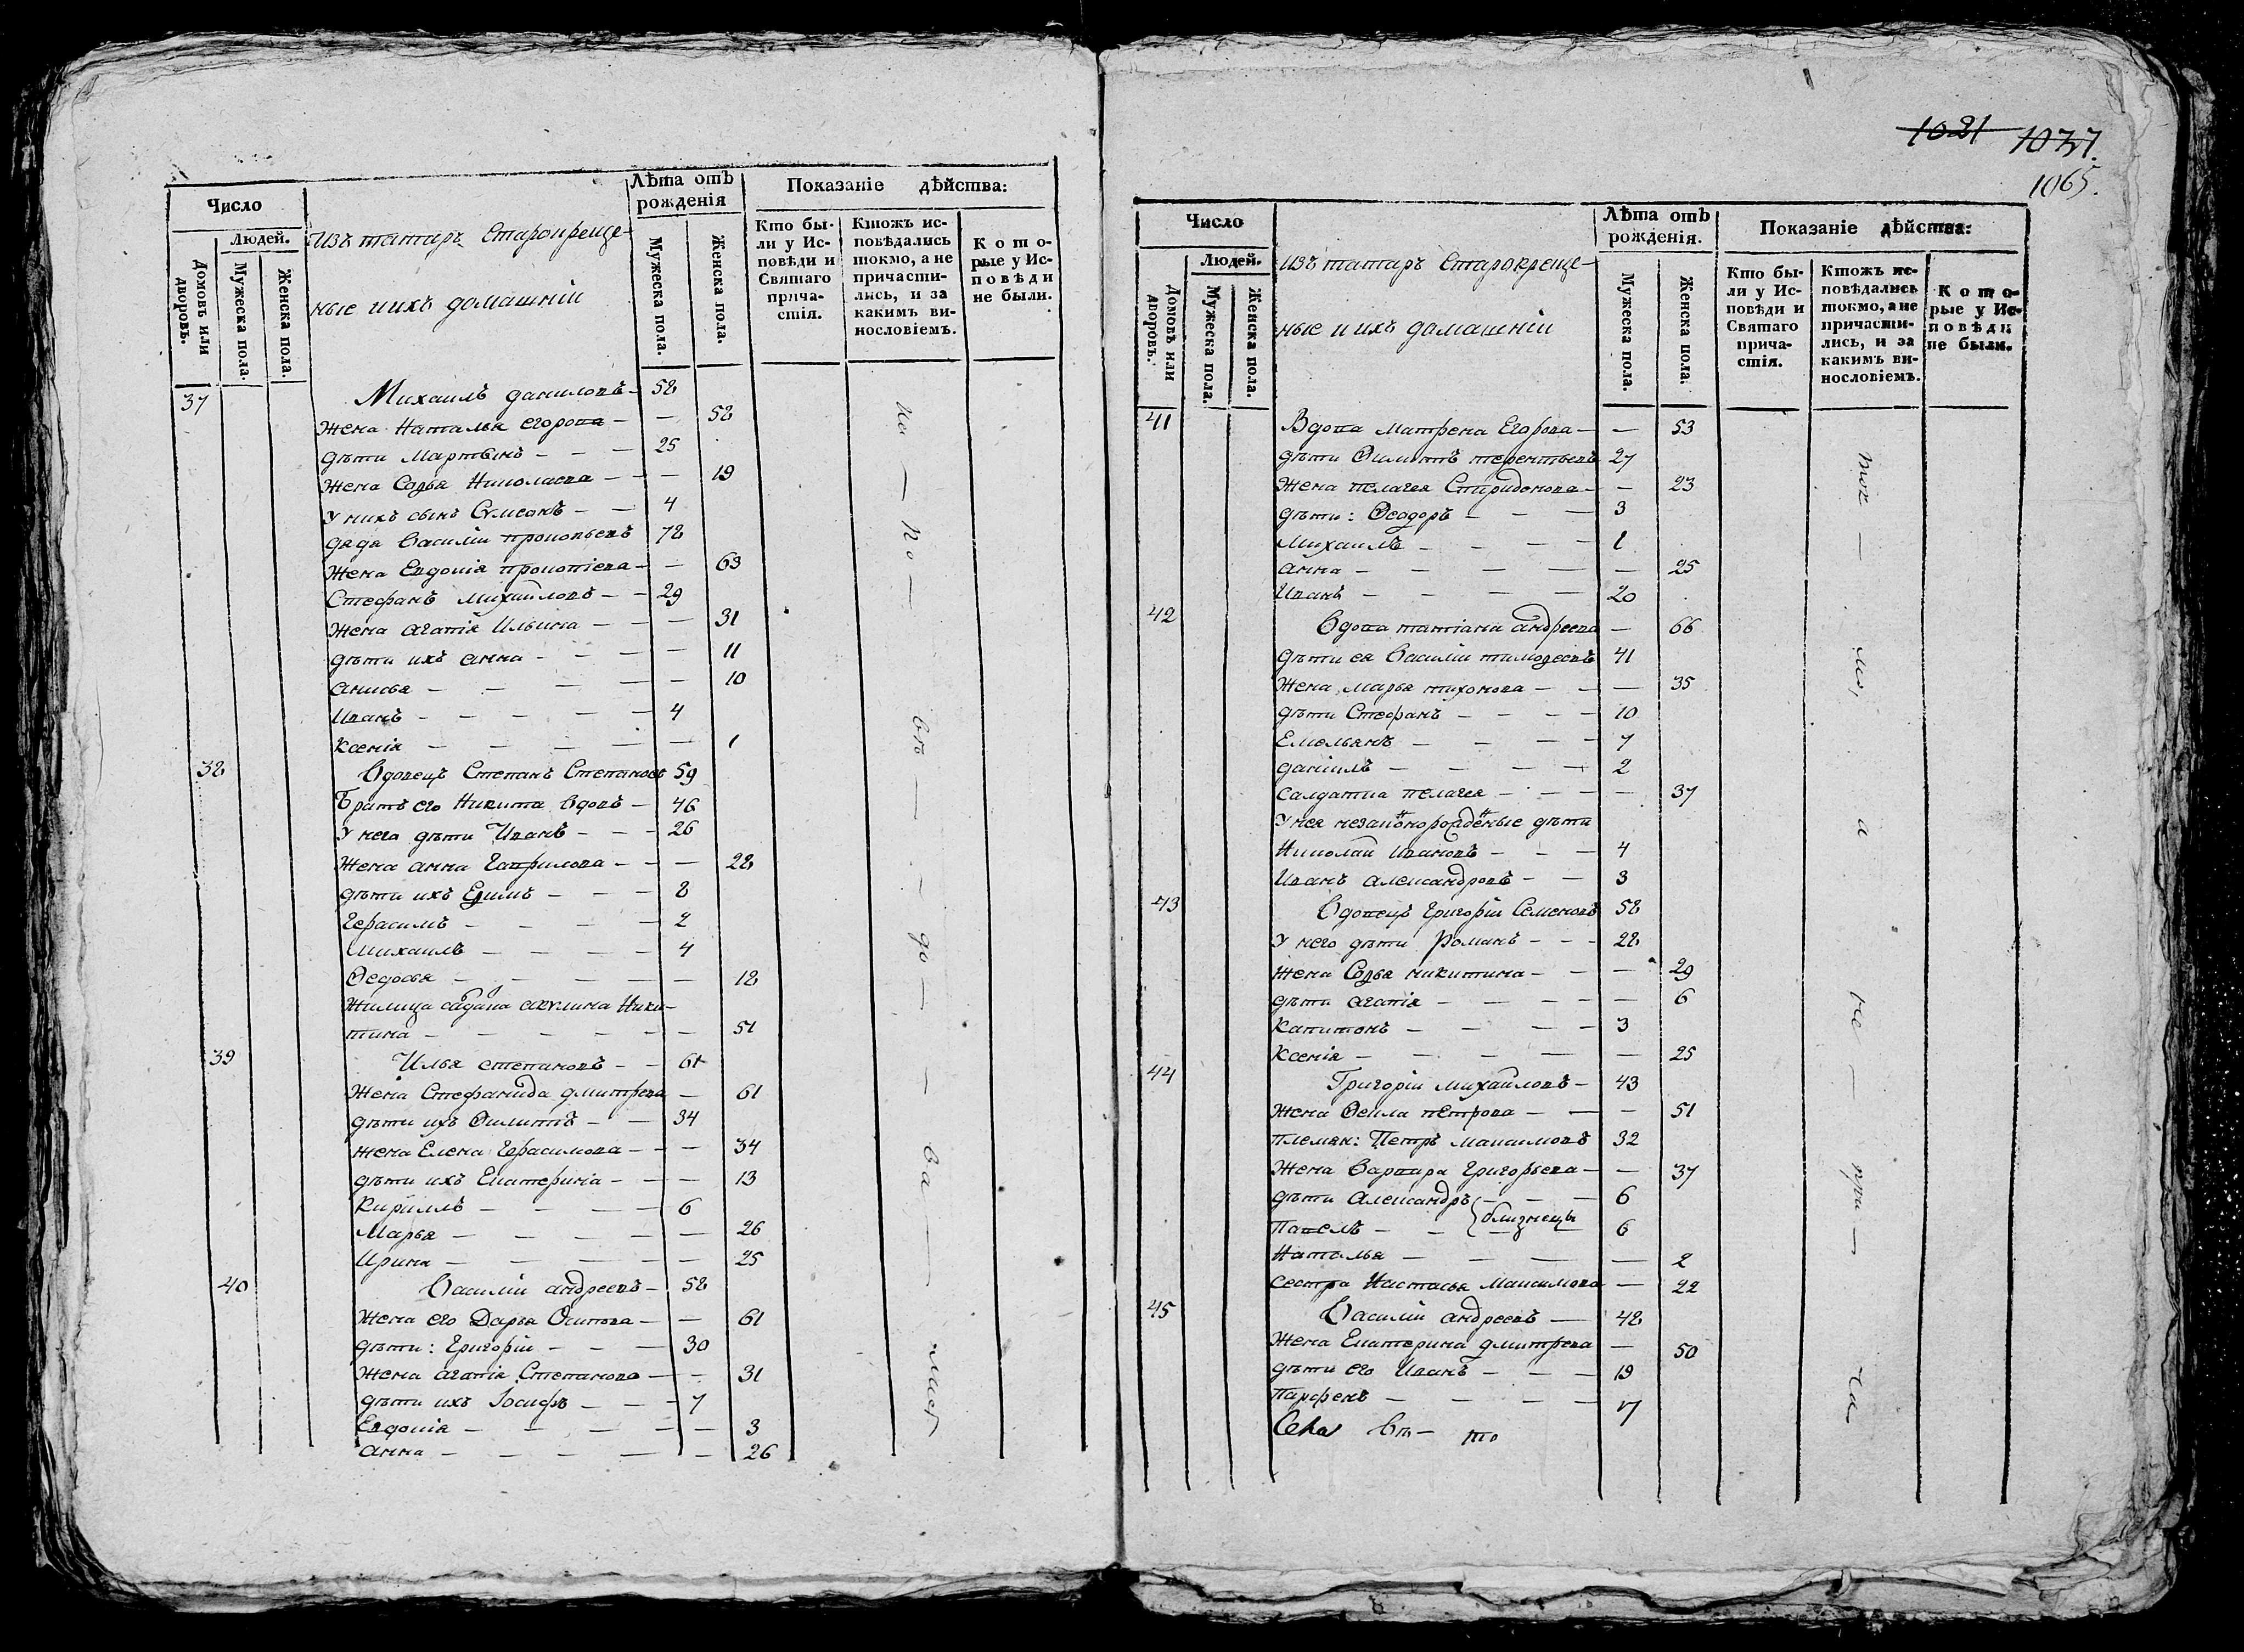 Число
Людей.
Домовъ или дворовъ.
Мужеска пола.
Женска пола.
Изъ татаръ Старокреще-
ные и ихъ домашніи
Лѣта отъ рожденія
Мужеска пола.
Женска пола.
Показаніе дѣйства:
Кто бы-
ли у Ис-
повѣди и
Святаго
прича-
стія.
Ктожъ ис-
повѣдались
токмо, а не
причасти-
лись, и за
какимъ ви-
нословіемъ.
Кото-
рые у Ис-
повѣди
не были.
37 Михаилъ даниловъ — 58
Жена Наталья егорова — — 58
дѣти Мартынъ — — — 25
Жена Софья Николаева — — — 19
У нихъ сынъ Сѵмеонъ — — 4
дядя Василіи прокопьевъ 78
Жена Евдокія прокопіева — — 63
Стефанъ михайловъ — — 29
Жена агапія Ильина — — — 31
дѣти ихъ анна — — — — 11
анисья — — — — — 10
Иванъ — — — — — 4
Ксенія — — — — — 1
38 Вдовецъ Степанъ Степановъ 59
Братъ его Никита вдовъ — 46
У него дѣти Иванъ — — — 26
Жена анна Гаврилова — — — 28
дѣти ихъ Ефимъ — — — 8
Герасимъ — — — — 2
Михаилъ — — — — 4
Ѳедосья — — — — — 18
Жилица вдова акулина Ники-
тина — — — — — — 51
39 Илья степановъ — — 61
Жена Стефанида дмитрева — 61
дѣти ихъ Филиппъ — — 34
жена Елена Герасимова — — — 34
дѣти ихъ Екатериніа — — — 13
Кириллъ — — — — 6
Марья — — — — — 26
Ирина — — — — — — 25
40 Василіи андреевъ — 58
Жена его Дарья Осипова — — 61
дѣти: Григоріи — — — 30
Жена агапія Степанова — — 31
дѣти ихъ Іосифъ — — — 7
Евдокія — — — — — 3
анна — — — — — 26
но — ко — въ — — до — — ва —
1021 1037.
1065.
Число
Людей.
Домовъ или дворовъ.
Мужеска пола.
Женска пола.
Изъ татаръ Старокреще-
ные и ихъ домашніи
Лѣта отъ рожденія.
Мужеска пола.
Женска пола.
Показаніе дѣйства:
Кто бы-
ли у Ис-
повѣди и
Святаго
прича-
стія.
Ктожъ ис-
повѣдались
токмо, а не
причасти-
лись, и за
какимъ ви-
нословіемъ.
Кото-
рые у Ис-
повѣди
не были.
41 Вдова Матрена Егорова — — 53
дѣти Филиппъ терентьевъ 27
Жена пелагея Спиридонова — — 23
дѣти: Ѳеодоръ — — — 3
Михаилъ — — — — 1
анна — — — — — 25
Иванъ — — — — 20
42 Вдова татіана андреева — 66
дѣти ея Василіи тимофеевъ 41
Жена марья тихонова — — — 35
дѣти Стефанъ — — — — 10
Емельянъ — — — — 7
даніилъ — — — — 2
Салдатка пелагея — — — — 37
У нея незаконорожденные дѣти
Николай Ивановъ — — — 4
Иванъ александровъ — — 3
43 Вдовецъ Григоріи Семеновъ 58
У него дѣти Романъ — — — 28
Жена Софья никитина — — — 29
дѣти агапія — — — — — 6
Капитонъ — — — — 3
Ксенія — — — — — 25
44 Григоріи михайловъ — 43
Жена Ѳекла петрова — — — 51
племян: Петръ максимовъ 32
Жена Варвара Григорьева — — 37
дѣти александръ — — — 6
близнецы
Павелъ — — — 6
Наталья — — — — — 2
сестра Настасья Максимова — 22
45 Василіи андреевъ — 48
Жена Екатерина дмитрева — 50
дѣти его Иванъ — — — 19
Парфенъ — — — — 7
Вѣ — то
ток — мо, а не — при — ча